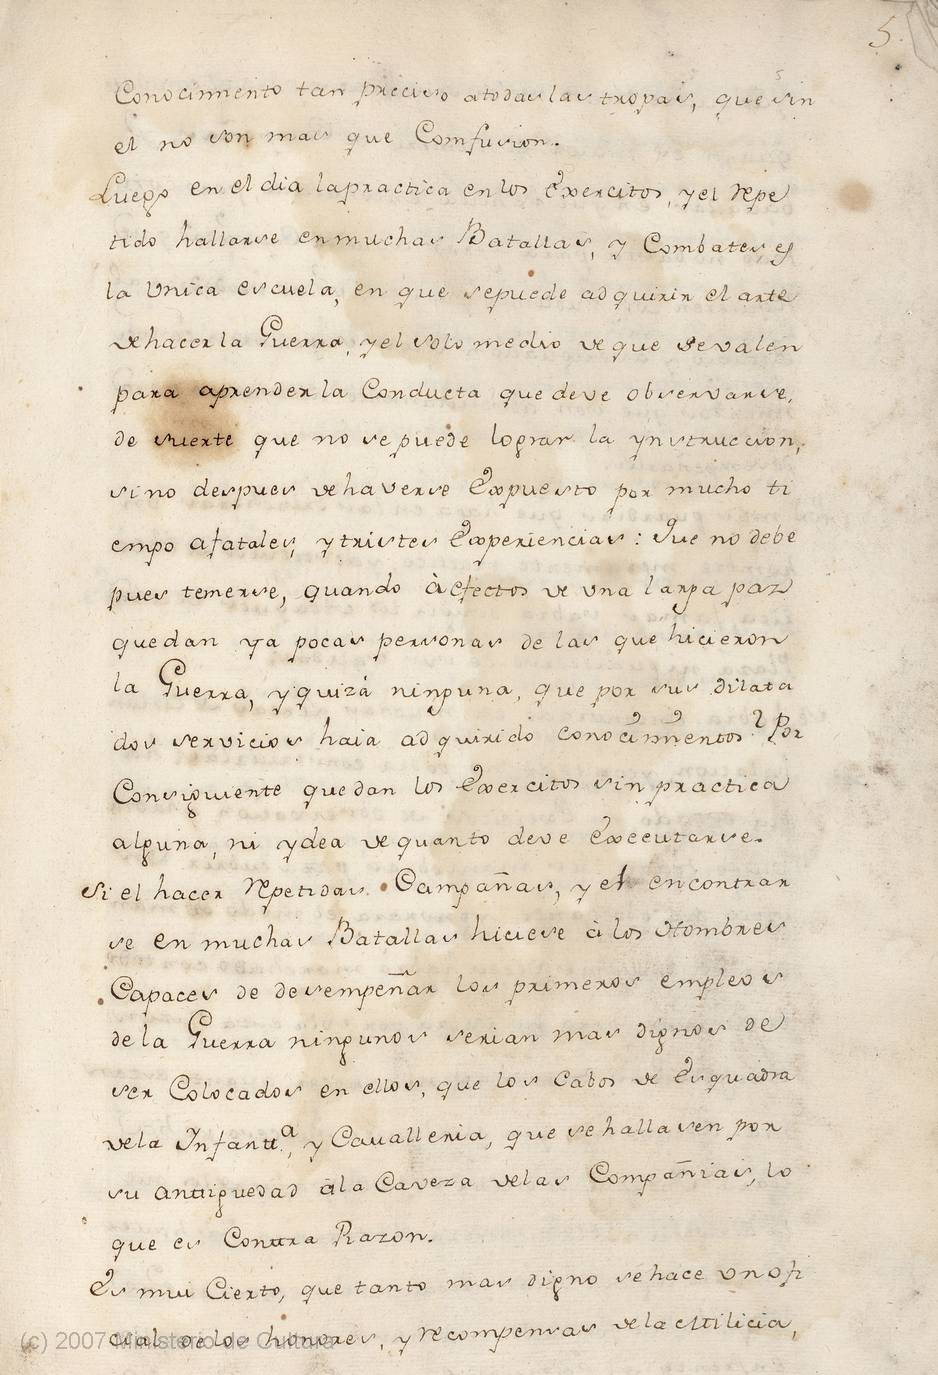 5.
Conocimiento tan preciso a todas las tropas, que sin
el no son mas que Comfusion.
Luego en el dia la practica en los Exercitos, y el repe
tido hallarse en muchas Batallas, y Combates, es
la Unica escuela, en que se puede adquirir el arte
de hacer la Guerra, y el solo medio de que se valen
para aprender la Conducta que deve observarse,
de suerte que no se puede lograr la ynstruccion,
sino despues de haverse Expuesto por mucho ti
empo a fatales, y tristes Experiencias: Que no debe
pues temerse, quando à efectos de una larga paz
quedan ya pocas personas de las que hicieron
la Guerra, y quizá ninguna, que por sus dilata
dos servicios haia adquirido conocimientos? Por
Consiguiente quedan los Exercitos sin practica
alguna, ni ydea de quanto deve Executarse.
Si el hacer repetidas Campañas, y el encontrar
se en muchas Batallas hiciese à los Hombres
Capaces de desempeñar los primeros empleos
de la Guerra ningunos serian mas dignos de
ser Colocados en ellos, que los Cabos de Esquadra
de la Infantª, y Cavalleria, que se hallasen por
su antiguedad à la Caveza de las Compañias, lo
que es Contra Razon.
Es mui Cierto, que tanto mas digno se hace un ofi
cial de los honores, y recompensas de la Milicia,
(c) 2007 Ministerio de Cultura